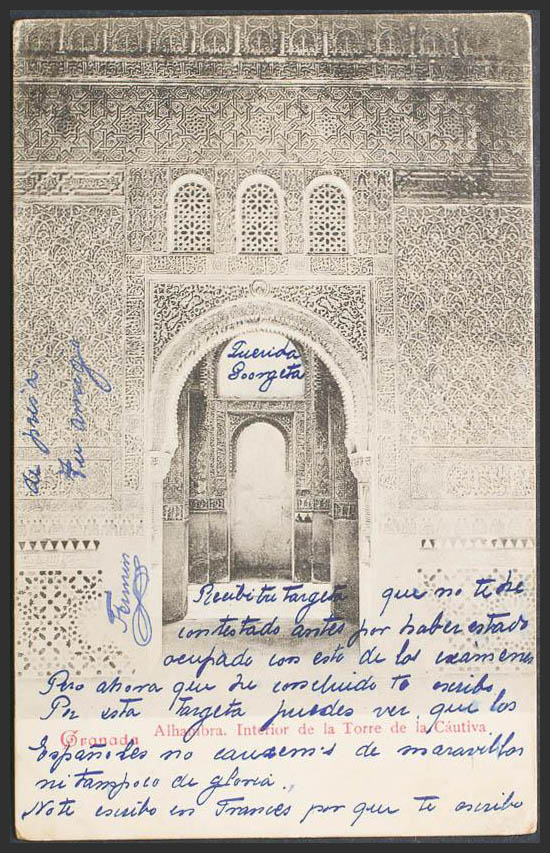 Querida
Georgeta
Recibi tu targeta que no te he
contestado antes por haber estado
ocupado con esto de los exámenes
Pero ahora que he concluido te escribo
Por esta targeta puedes ver que los
Granada Alhambra. Interior de la Torre de la Cáutiva
Españoles no carecemos de maravillas
ni tampoco de gloria.
No te escribo en Frances por que te escribo
de prisa.
Tu amigo
Fermin